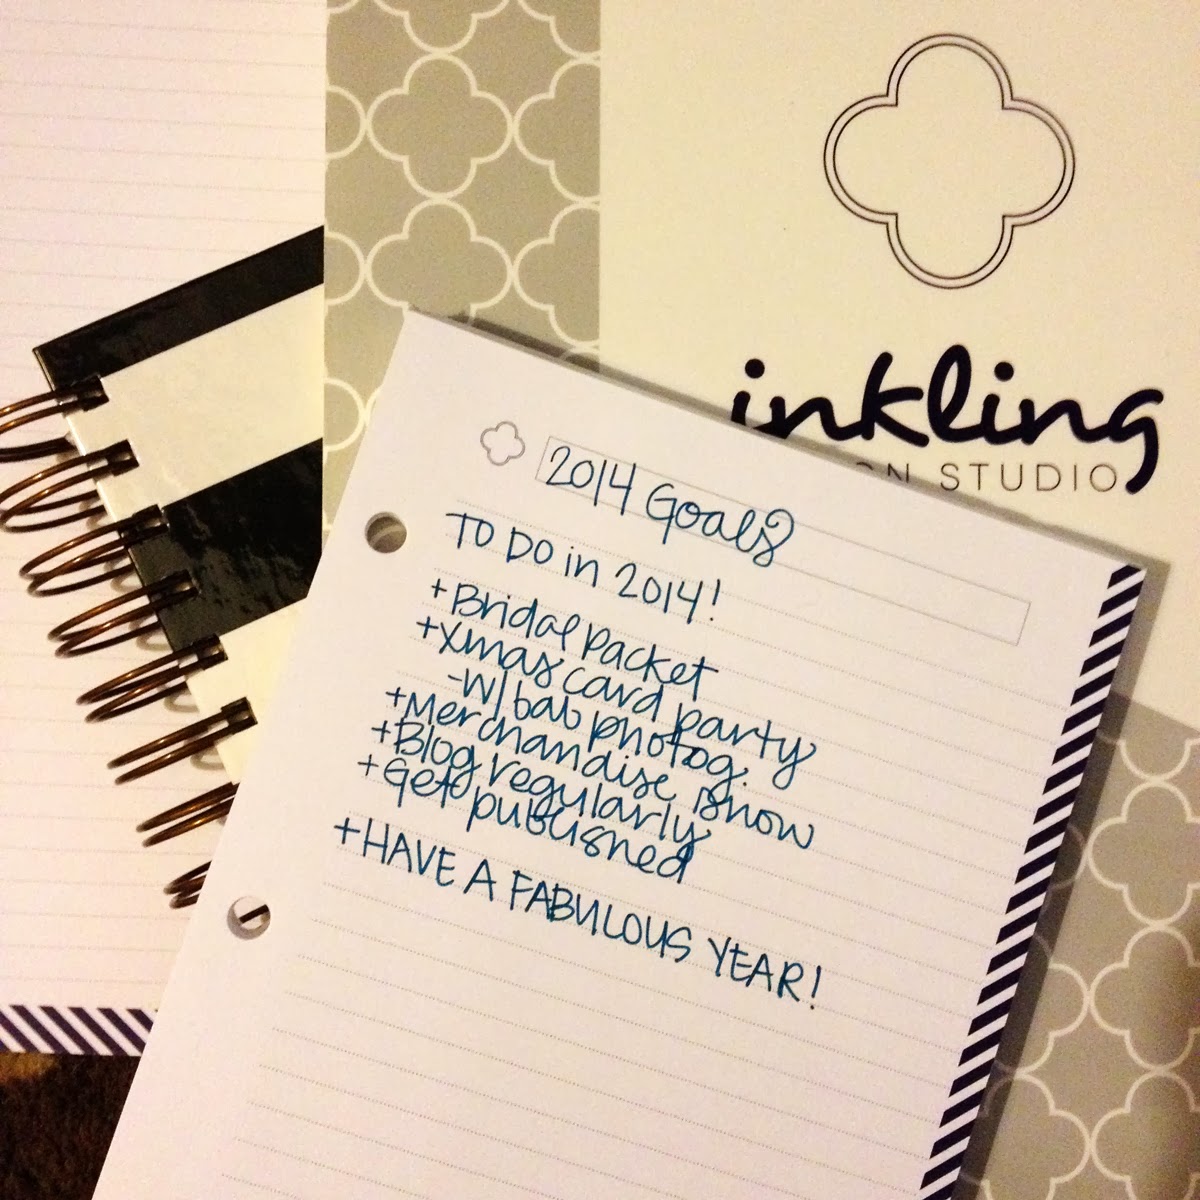 inkling
ON STUDIO
2014 Goals
TO DO in 2014!
+Bridal Packet
+Xmas card party
-W/ bab photog.
+Merchandise show
+Blog regularly
+Get published
+HAVE A FABULOUS YEAR!